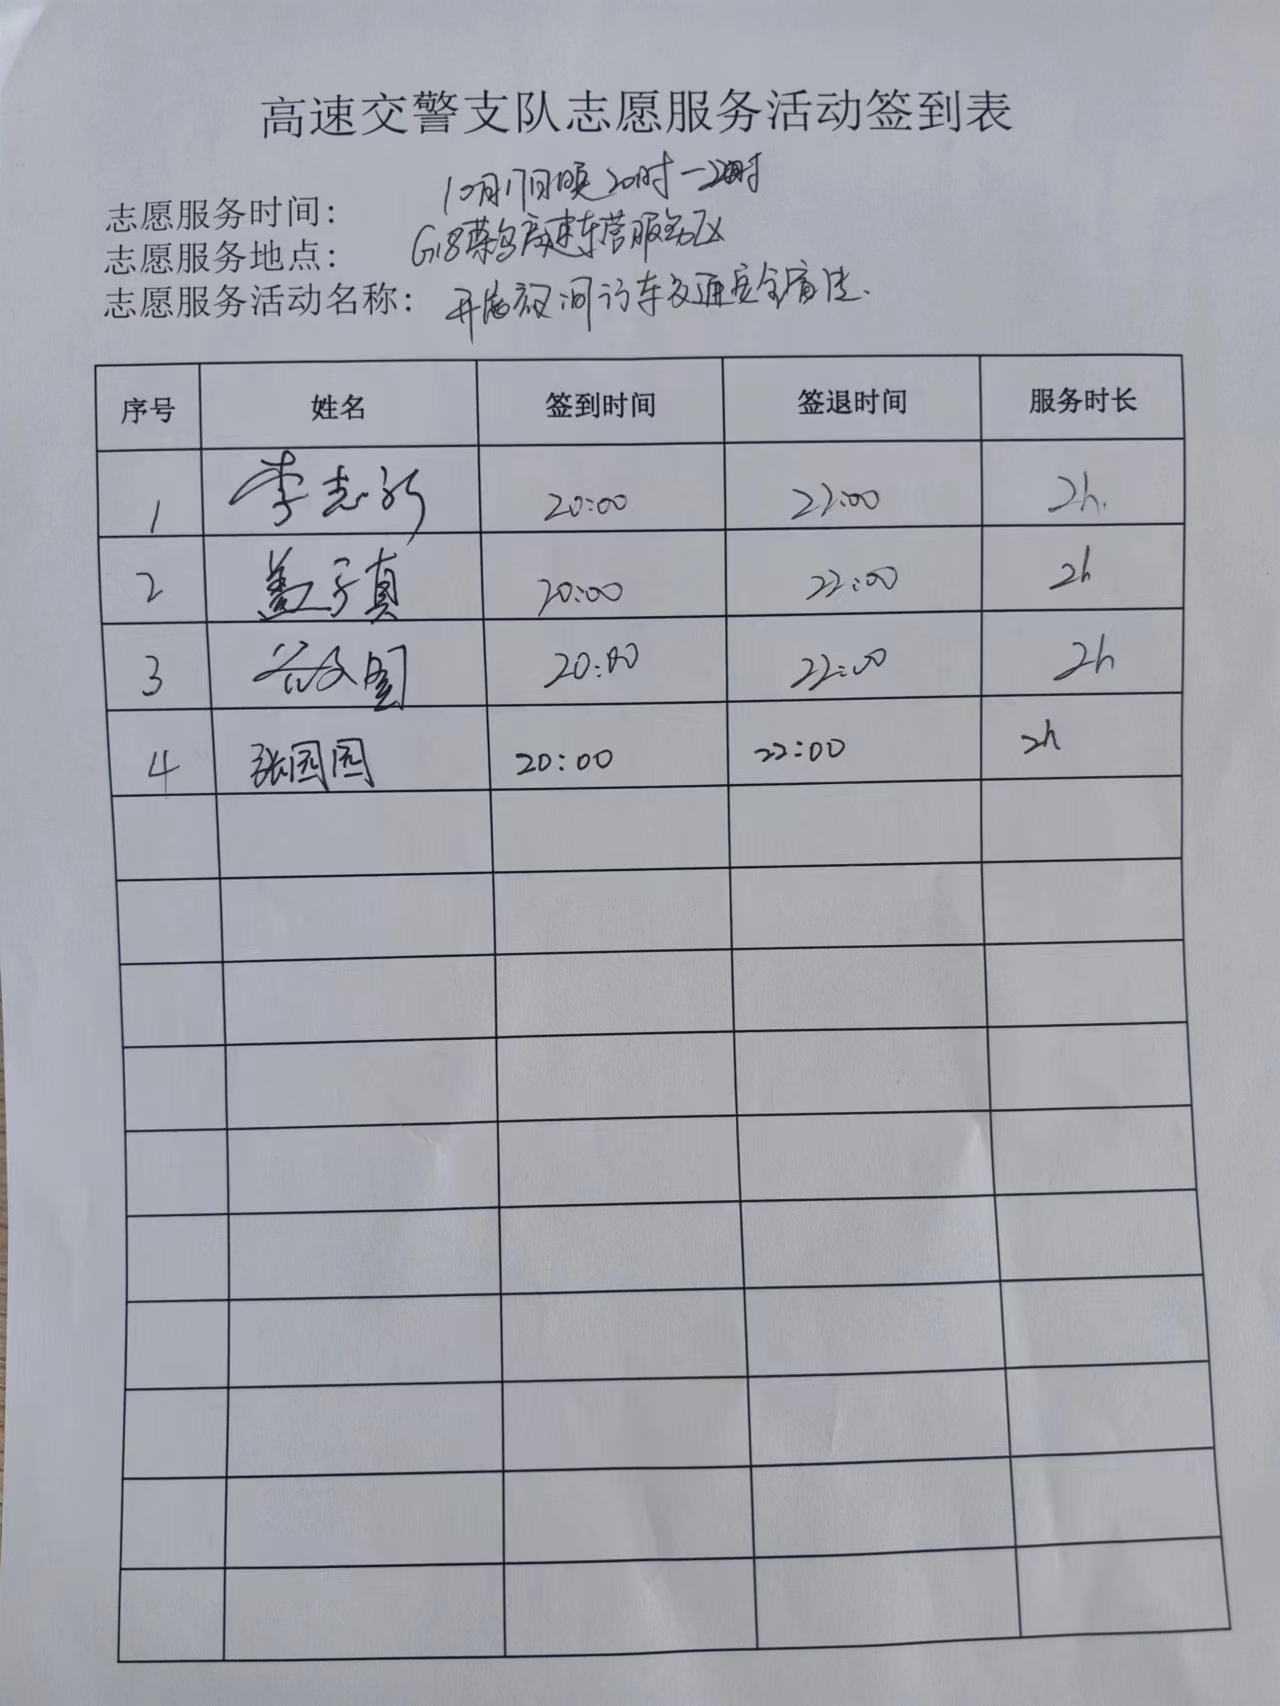 高速交警支队志愿服务活动签到表
志愿服务时间： 10月17日晚20时—22时
志愿服务地点： G18荣乌高速东营服务区
志愿服务活动名称： 开展夜间行车交通安全宣传.
序号 姓名 签到时间 签退时间 服务时长
1 李志 20:00 22:00 2h.
2 盖子真 20:00 22:00 2h
3 20:00 22:00 2h
4 张园园 20:00 22:00 2h